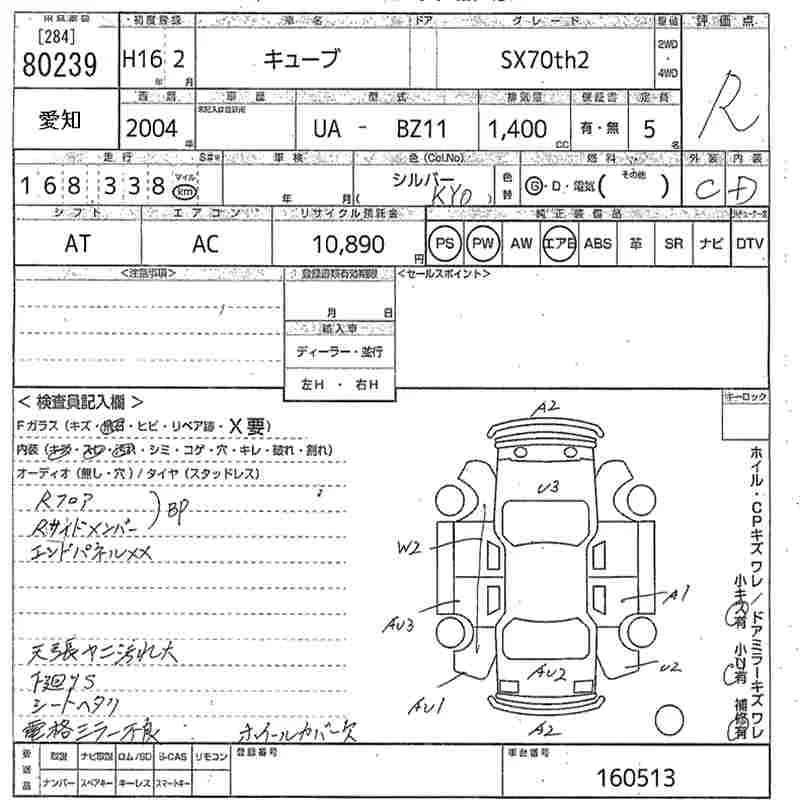 初度登録 車名 ドア グレード 評価点
[284]
80239 H16年 2月 キューブ SX70th2 2WD・4WD R
西暦 車歴 型式 排気量 保証書 定員
愛知 2004年 UA - BZ11 1,400cc 有・無 5名
走行 S#等 車検 色(Col.No) 燃料 外装 内装
168,338 マイル km 年 月 シルバー (KY0) 色替 G・D・電気 (その他) C D
シフト エアコン リサイクル預託金 純正装備品
AT AC 10,890円 PS PW AW エアB ABS 革 SR ナビ DTV
<注意事項> 登録書類有効期限 <セールスポイント>
月 日
輸入車
ディーラー・並行
左H ・ 右H
キーロック
<検査員記入欄>
Fガラス(キズ・飛石・ヒビ・リペア跡・X要)
内装(キズ・スレ・汚れ・シミ・コゲ・穴・キレ・破れ・割れ)
オーディオ(無し・穴)/タイヤ(スタッドレス)
Rフロア
Rサイドメンバー )BP
エンドパネルXX
天張ヤニ汚れ大
下廻りS
シートヘタリ
電格ミラー不良 ホイールカバー欠
A2
U3
W2
A1
AU3
U2
AU2
AU1
A2
ホイル・CPキズワレ/ドアミラーキズワレ
小キズ有 小U有 補修有
発送品 取説 ナビ取説 ロム/SD B-CAS リモコン 登録番号 車台番号
ナンバー スペアキー キーレス スマートキー 160513